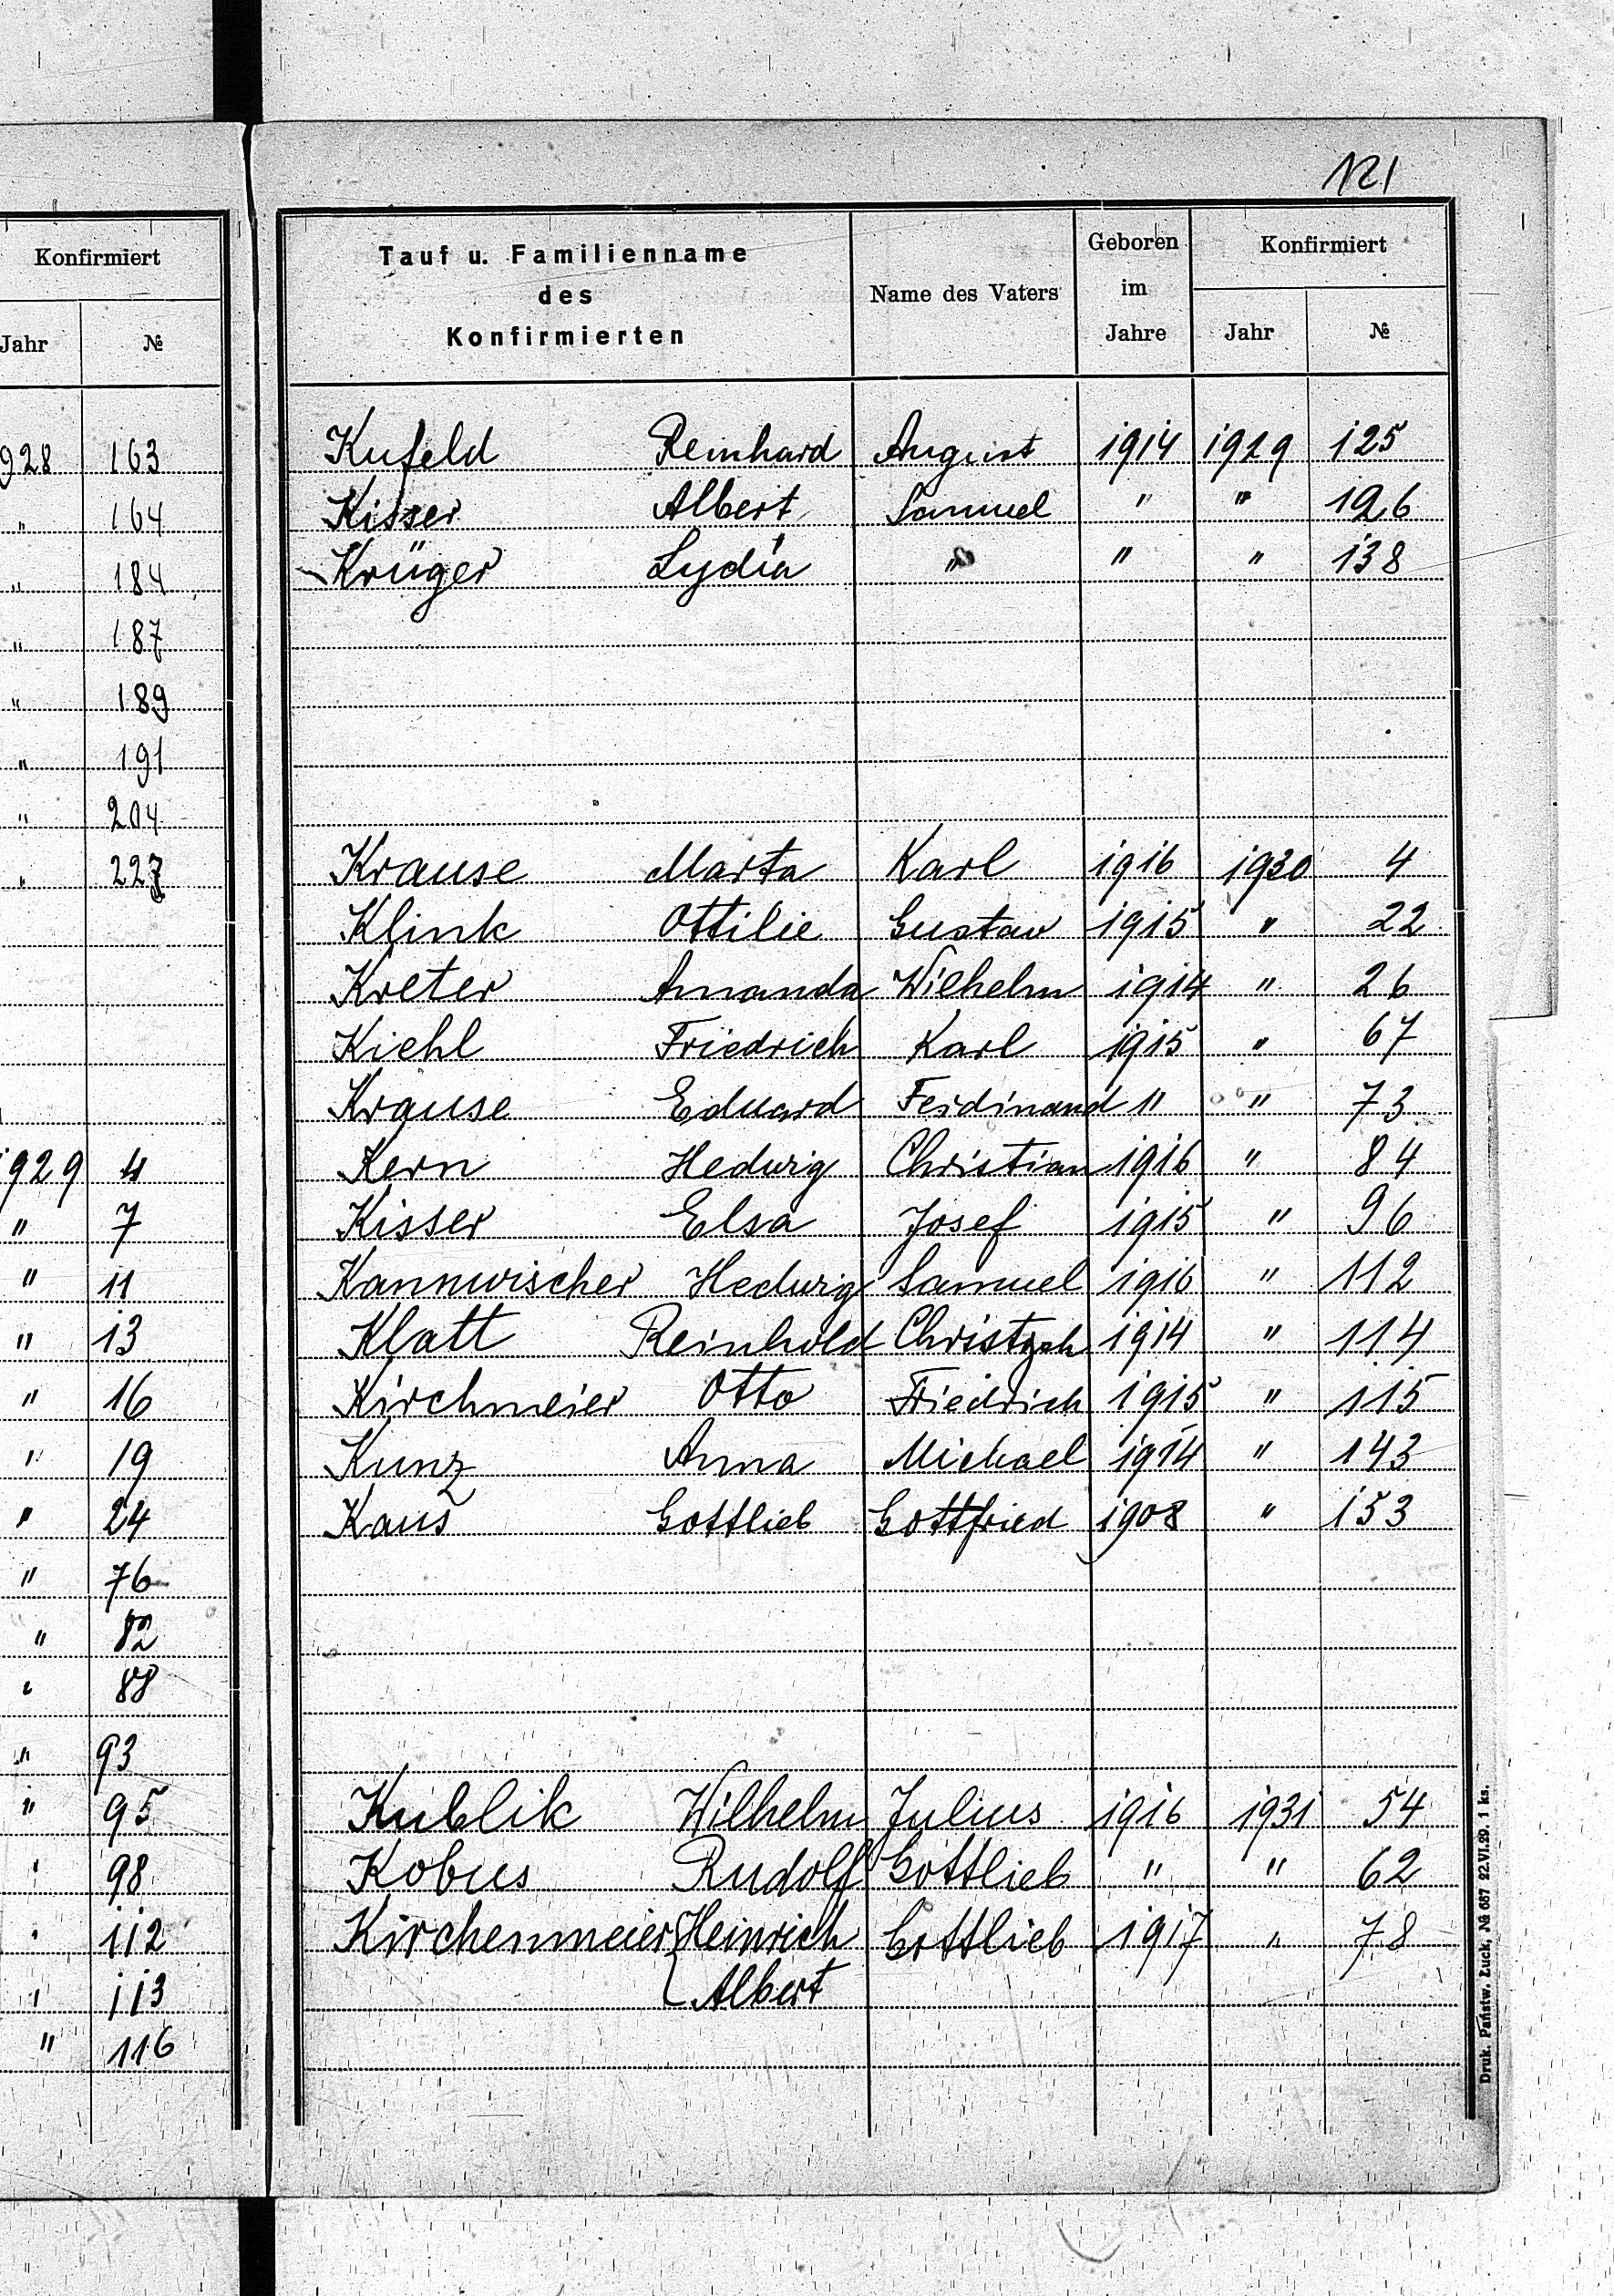 Konfirmiert
Jahr №
928 163
" 164
" 184
" 187
" 189
" 191
" 204
" 227
1929 4
" 7
" 11
" 13
" 16
" 19
" 24
" 76
" 82
" 88
" 93
" 95
" 98
" 112
" 113
" 116
121
Tauf u. Familienname
des
Konfirmierten
Name des Vaters
Geboren
im
Jahre
Konfirmiert
Jahr №
Kufeld Reinhard August 1914 1929 125
Kisser Albert Samuel " " 126
Krüger Lydia " " " 138
Krause Marta Karl 1916 1930 4
Klink Ottilie Gustav 1915 " 22
Kreter Amanda Wilhelm 1914 " 26
Kiehl Friedrich Karl 1915 " 67
Krause Eduard Ferdinand " " 73
Kern Hedwig Christian 1916 " 84
Kisser Elsa Josef 1915 " 96
Kannwischer Hedwig Samuel 1916 " 112
Klatt Reinhold Christgoh 1914 " 114
Kirchmeier Otto Friedrich 1915 " 115
Kunz Anna Michael 1914 " 143
Kaus Gottlieb Gottfried 1908 " 153
Kublik Wilhelm Julius 1916 1931 54
Kobus Rudolf Gottlieb " " 62
Kirchenmeier { Heinrich Gottlieb 1917 " 78
Albert
Druk. Państw. Łuck, № 687 22.VI.29. 1 ks.